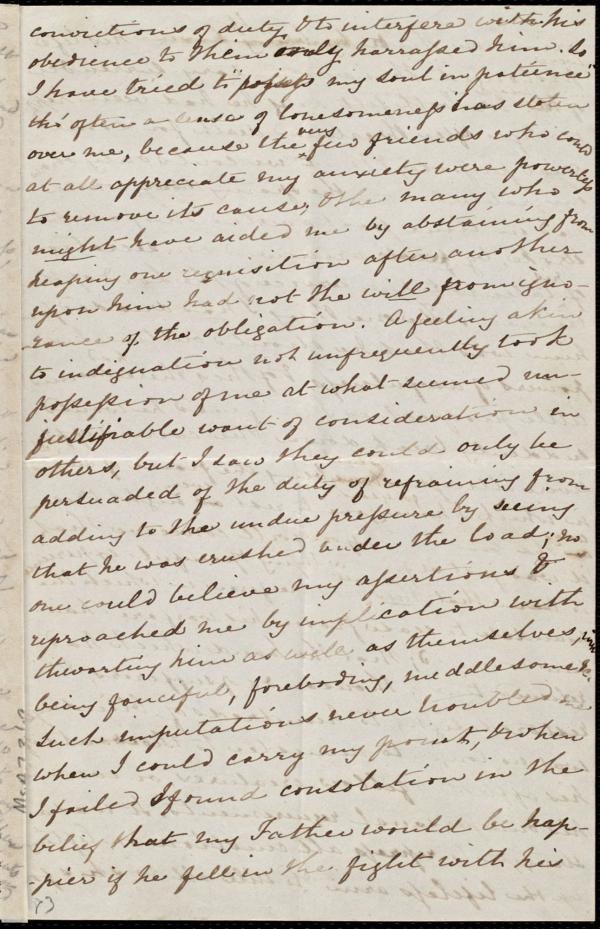 convictions of duty, & to interfere with his
obedience to them only harrassed him. So
I have tried to "possess my soul in patience"
tho' often a sense of lonesomeness has stolen
over me, because the very few friends who could
at all appreciate my anxiety were powerless
to remove its cause, & the many who
might have aided me by abstaining from
heaping one requisition after another
upon him had not the will from igno-
rance of the obligation. A feeling akin
to indignation not unfrequently took
possession of me at what seemed un-
justifiable want of consideration in
others, but I saw they could only be
persuaded of the duty of refraining from
adding to the undue pressure by seeing
that he was crushed under the load; no
one could believe my assertions &
reproached me by implication with
thwarting him as well as themselves, with
being fanciful, foreboding, meddlesome &c.
Such imputations never troubled
when I could carry my point, & when
I failed I found consolation in the
belief that my Father would be hap-
pier if he fell in the fight with his
73